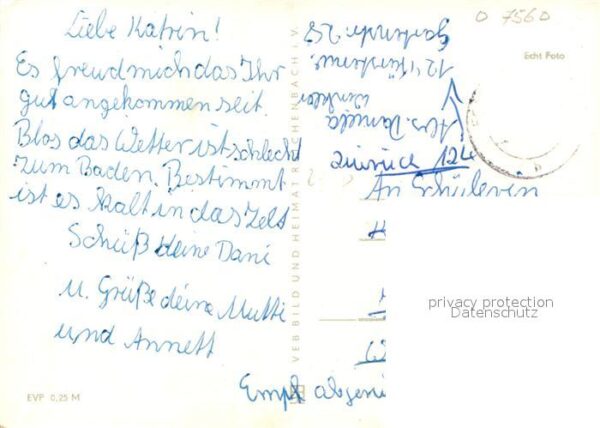 Liebe Katrin!
Es freud mich das Ihr
gut angekommen seit.
Blos das Wetter ist schlecht
zum Baden. Bestimmt
ist es kalt in das Zelt
Schüß deine Dani
u. Grüße deine Mutti
und Annett
EVP 0,25 M
VEB BILD UND HEIMAT REICHENBACH i. V.
0 7560
Echt Foto
Abs. Daniela
Winkler
124
Gartenstr. 28
zurück 124
An Schülerin
privacy protection
Datenschutz
Empf